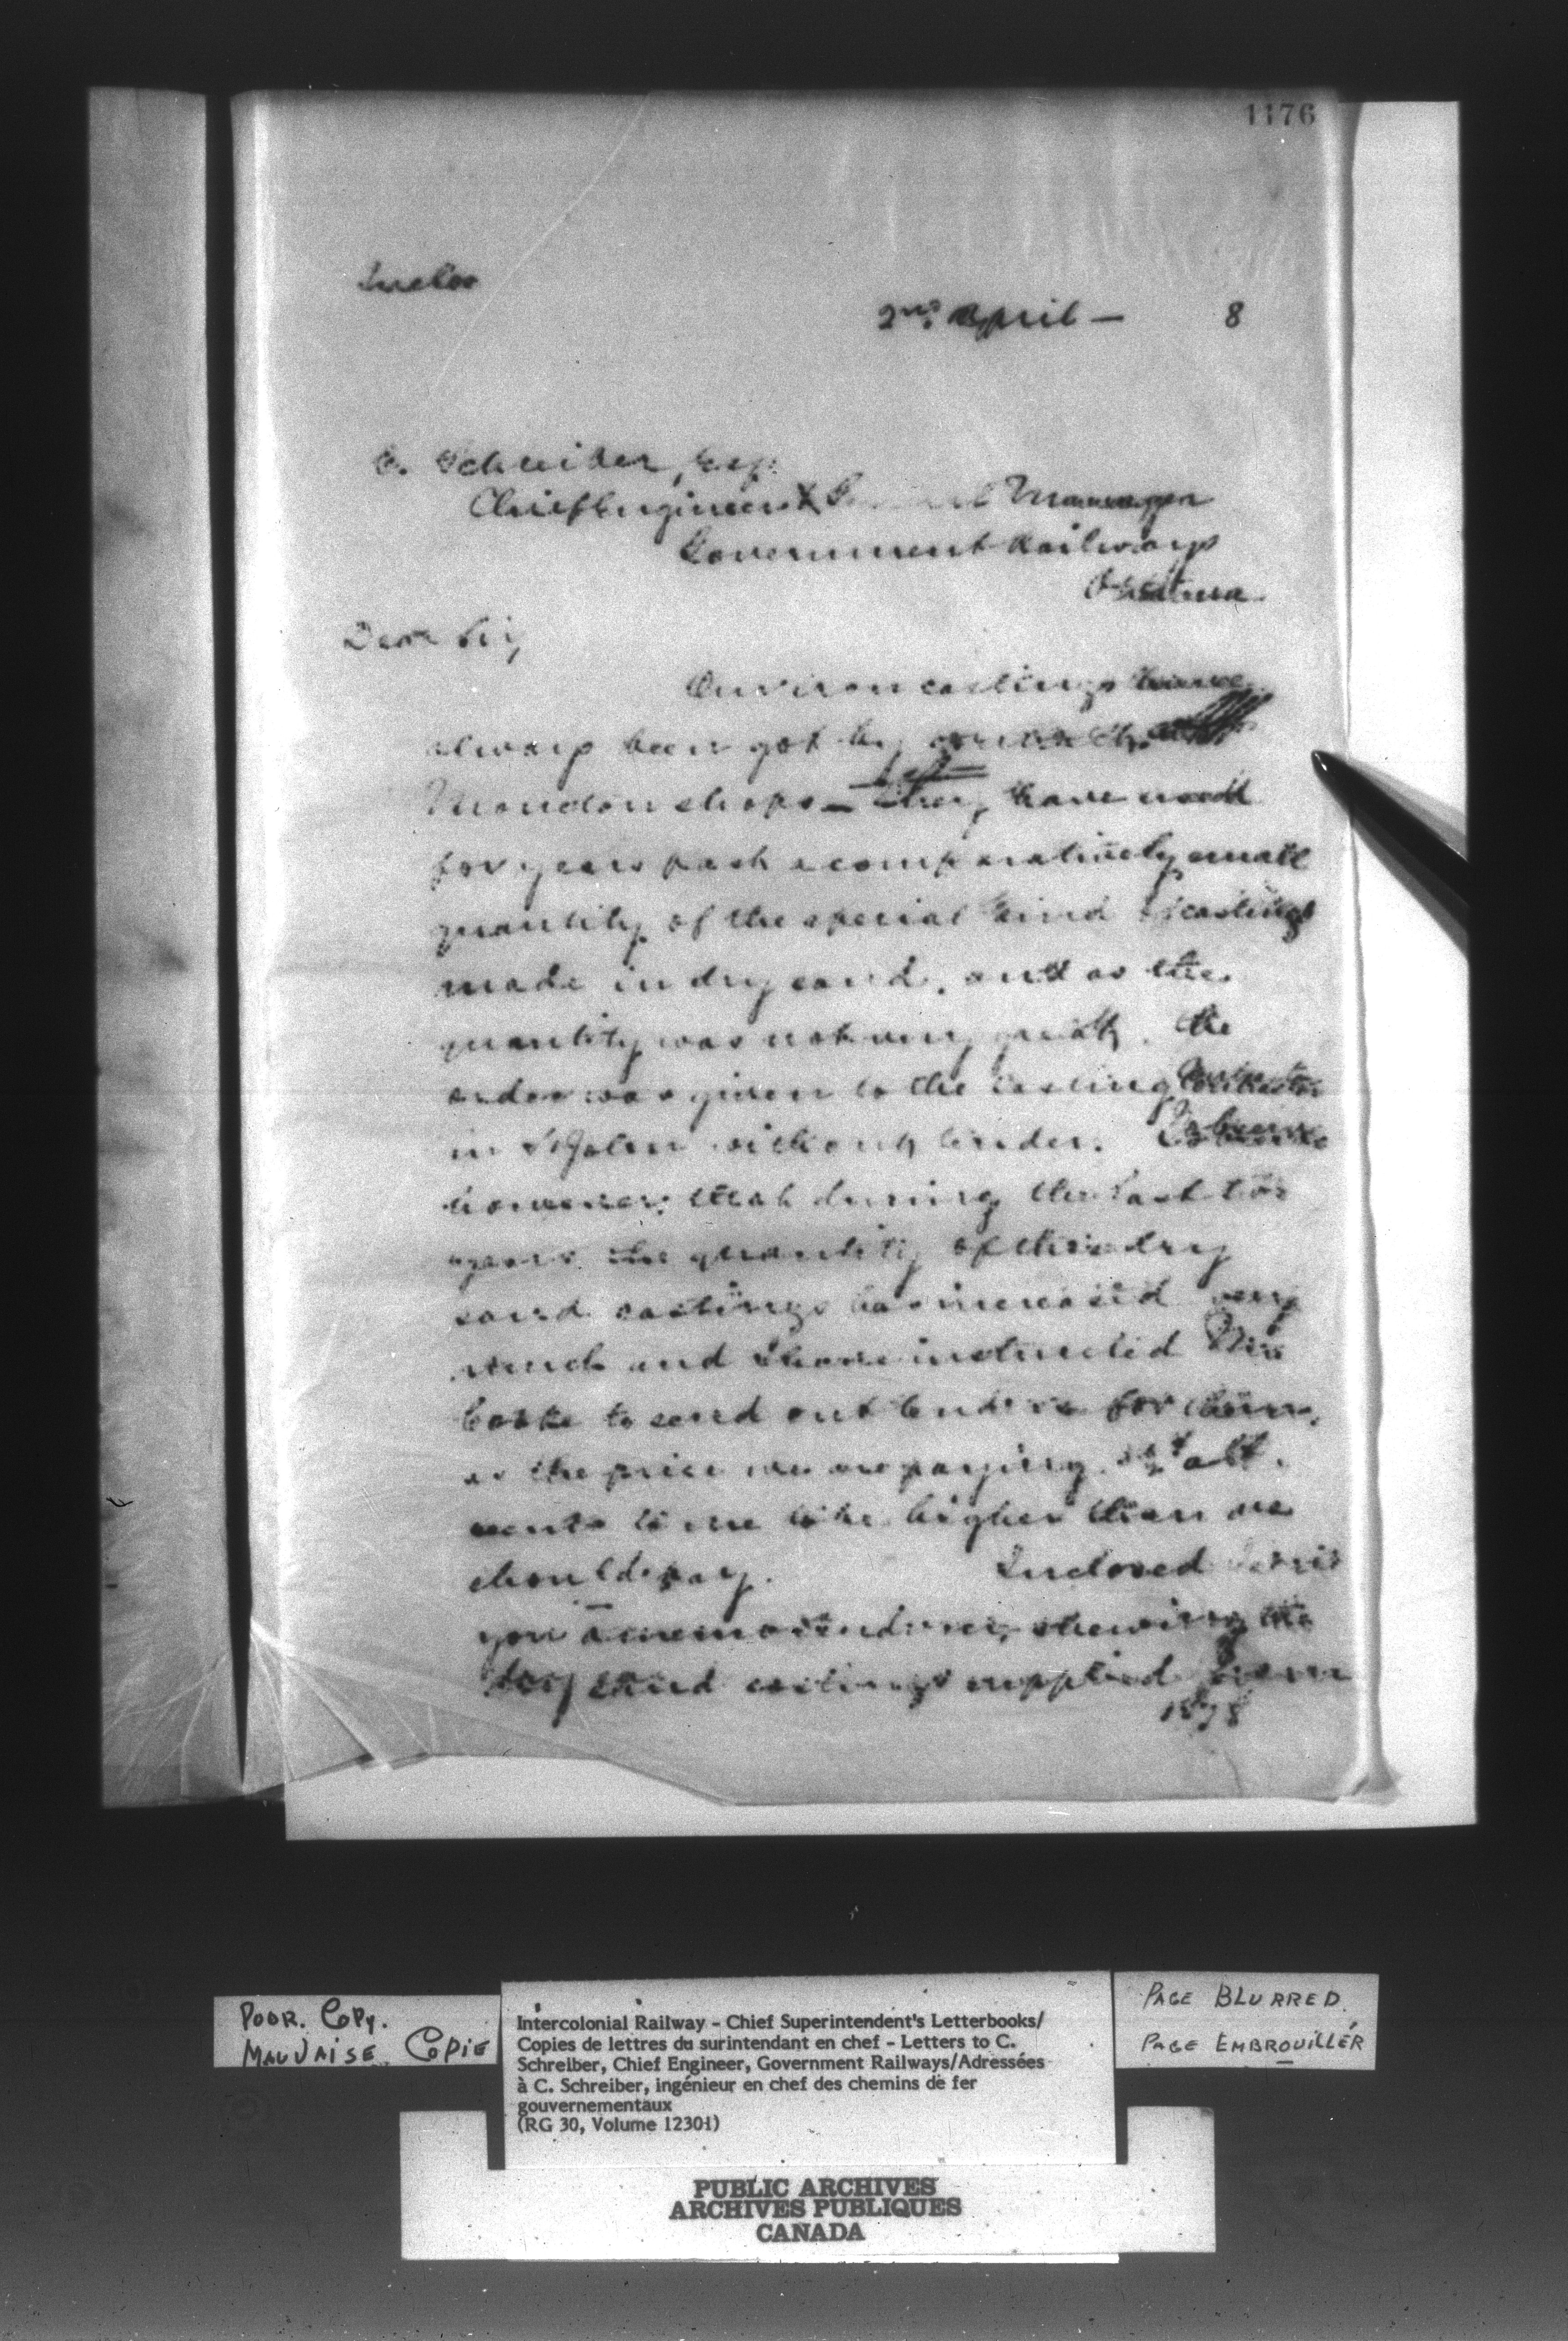 1176
Inclos
2nd April — 8
C. Schreiber, Esq.
Chief Engineer & General Manager
Government Railways
Ottawa
Dear Sir,
Our iron castings have
always been got by
Moncton shops — they have used
for years past a comparatively small
quantity of the special kind of castings
made in dry sand, and as the
quantity was not very great, the
order was given to the casting contractor
in St John without tender. I observe
however, that during the last two
years the quantity of these dry
sand castings has increased very
much and I have instructed Mr
Cooke to send out tenders for them,
as the price we are paying
seems to me to be higher than we
should pay. Inclosed I send
you a memorandum, shewing the
dry sand castings supplied from
1878
POOR. COPY.
MAUVAISE COPIE
Intercolonial Railway - Chief Superintendent's Letterbooks/
Copies de lettres du surintendant en chef - Letters to C.
Schreiber, Chief Engineer, Government Railways/Adressées
à C. Schreiber, ingénieur en chef des chemins de fer
gouvernementaux
(RG 30, Volume 12301)
PAGE BLURRED
PAGE EMBROUILLÉR
PUBLIC ARCHIVES
ARCHIVES PUBLIQUES
CANADA